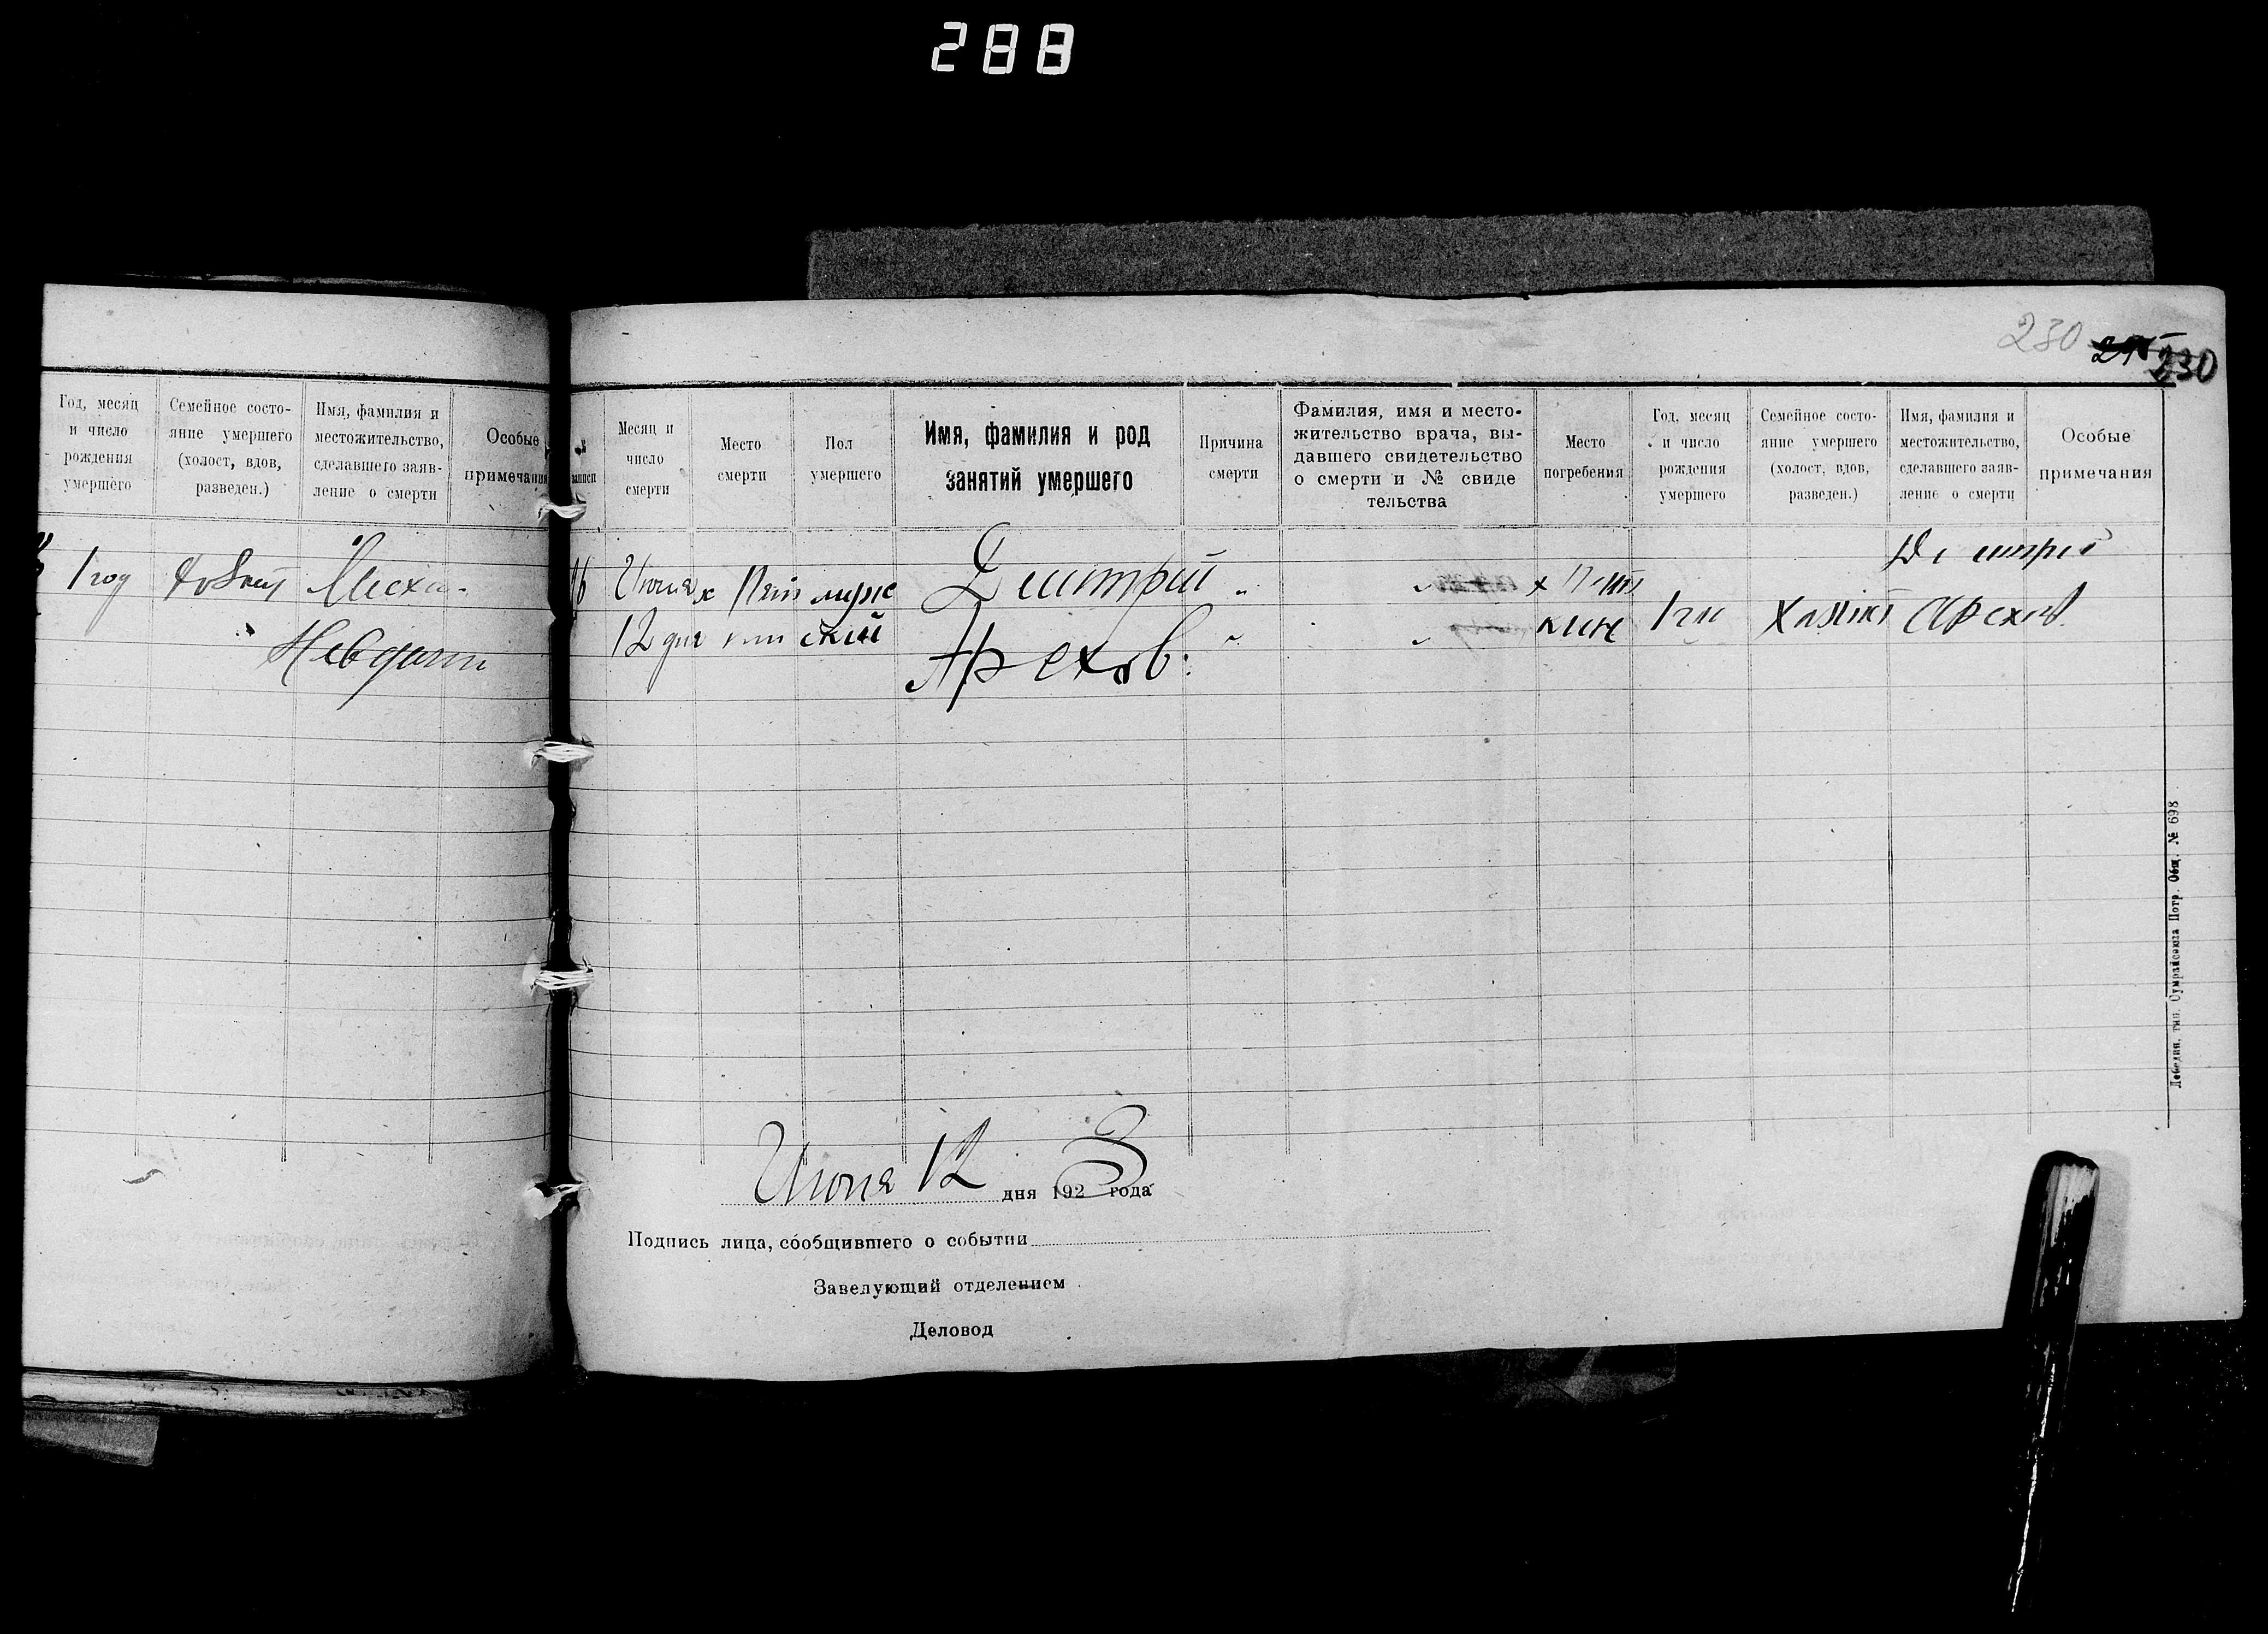 288
230 230
Год, месяц
и число
рождения
умершего
Семейное состо-
яние умершего
(холост, вдов,
разведен.)
Имя, фамилия и
местожительство,
сделавшего заяв-
ление о смерти
Особые
примечания
1 год
записи
Месяц и
число
смерти
Место
смерти
Пол
умершего
Имя, фамилия и род
занятий умершего
Причина
смерти
Фамилия, имя и место-
жительство врача, вы-
давшего свидетельство
о смерти и № свиде
тельства
Место
погребения
Год, месяц
и число
рождения
умершего
Семейное состо-
яние умершего
(холост, вдов,
разведен.)
Имя, фамилия и
местожительство,
сделавшего заяв-
ление о смерти
Особые
примечания
Июня
12 дня
мужс
ский
Дмитрий
Арехов.
Июня 12 дня 1923 года
Подпись лица, сообщившего о событии
Заведующий отделением
Деловод
Лебедин, тип. Сумрайсоюза Потр. Общ. № 698